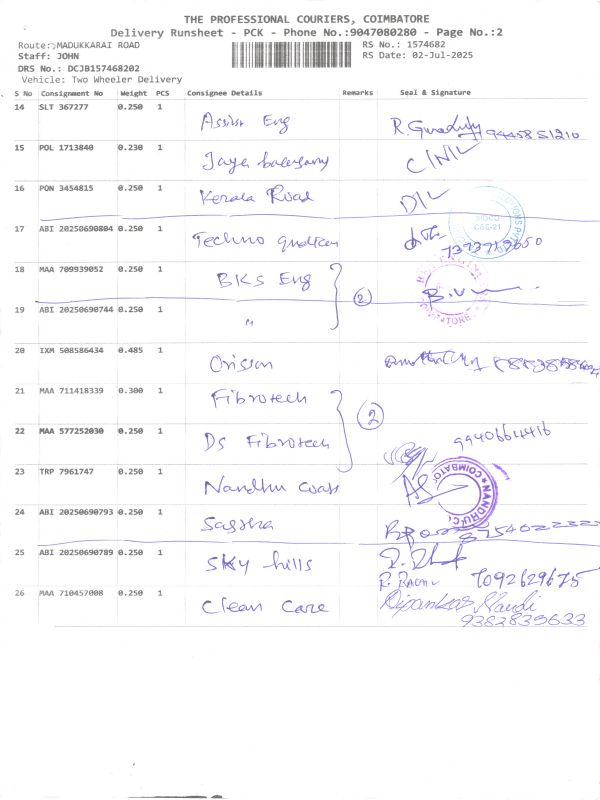 THE PROFESSIONAL COURIERS, COIMBATORE
Delivery Runsheet - PCK - Phone No.:9047080280 - Page No.:2
Route: MADUKKARAI ROAD RS No.: 1574682
Staff: JOHN RS Date: 02-Jul-2025
DRS No.: DCJB157468202
Vehicle: Two Wheeler Delivery
S No Consignment No Weight PCS Consignee Details Remarks Seal & Signature
14 SLT 367277 0.250 1 Assist Eng 9445851210
15 POL 1713840 0.230 1 Jaya
16 PON 3454815 0.250 1 Kerala Road
17 ABI 20250690804 0.250 1 Techno
18 MAA 709939052 0.250 1 BKS Eng 2 B.V
19 ABI 20250690744 0.250 1 "
20 IXM 508586434 0.485 1 Orison
21 MAA 711418339 0.300 1 Fibrotech 2
22 MAA 577252030 0.250 1 Ds Fibrotech 9940664416
23 TRP 7961747 0.250 1 Nandhu COIMBATO NANDHU C
24 ABI 20250690793 0.250 1
25 ABI 20250690789 0.250 1 Sky hills 7092629675
26 MAA 710457008 0.250 1 Clean Care Dipankar Nandi
9382839633